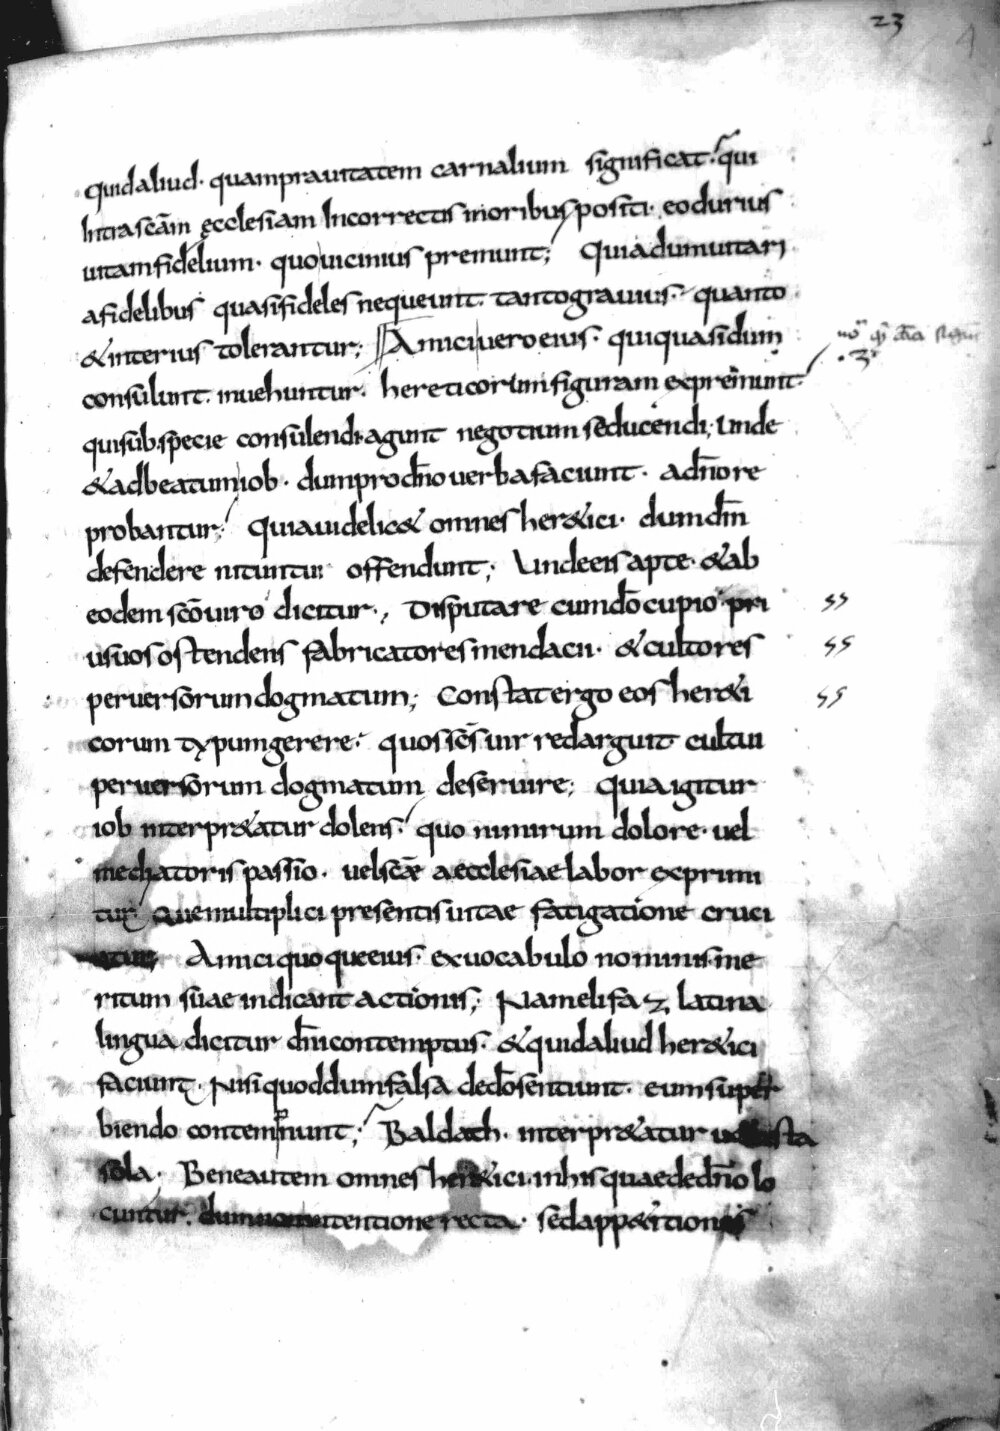 23
quid aliud · quam prauitatem carnalium significat · qui
Intra scām ęcclesiam Incorrectis moribus positi · eo durius
uitam fidelium · quo uicinius premunt; Quia dum uitari
a fidelibus quasi fideles nequeunt · tanto grauius · quanto
& interius tolerantur; Amici uero eius · qui quasi dum
consulunt · inuehuntur · hereticorum figuram exprimunt ·
qui sub specie consulendi agunt negotium seducendi; Unde
& ad beatum iob · dum pro dn̄o uerba faciunt · a dn̄o re
probantur; Quia uidelic& omnes her&ici · dum dm̄
defendere nituntur offendunt; Unde eis apte · & ab
eodem scō uiro dicitur; Disputare cum dō cupio pri
us uos ostendens fabricatores mendacii · & cultores
peruersorum dogmatum; Constat ergo eos her&i
corum typum gerere · quos scs̄ uir redarguit cultui
peruersorum dogmatum deseruire; Quia igitur
iob interpr&atur dolens · quo nimirum dolore · uel
mediatoris passio · uel scae aecclesiae labor exprimi
tur · Que multiplici presentis uitae fatigatione cruci
atur; Amici quoque eius · ex uocabulo nominis · me
ritum suae indicant actionis; Nam elifaz, latina
lingua dicitur dn̄i contemptus · & quid aliud her&ici
faciunt · Nisi quod dum falsa de dō sentiunt · eum super
biendo contempnunt; Baldach · interpr&atur uetusta
sola · Bene autem omnes her&ici · in his quae de dn̄o lo
cuntur · dum non intentione recta · sed app&itionis